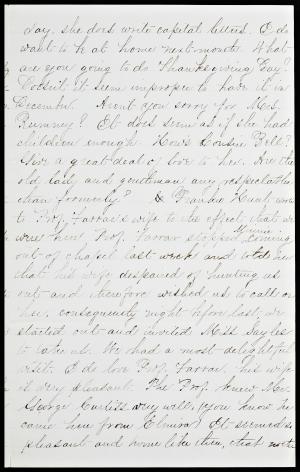 say, she does write capital letters. I do
want to be at home next month. What
are you going to do Thanksgiving Day?
Doesn't it seem improper to have it in
December. Arn't you sorry for Mrs.
Rumney? It does seem as if she had
children enough. How's Cousin Bell?
Give a great deal of love to her. Are the
old lady and gentleman any respectabler
than formerly? & Frankie Hunt wrote
to Prof. Farrar's wife to the effect that we
were here. Prof. Farrar stopped Minnie coming
out of chapel last week and told her
that his wife despaired of hunting us
out and therefore wished us to call on
her. consequently night before last, we
started out and invited Miss Sayles
to take us. We had a most delightful
visit. I do love Prof. Farrar. his wife
is very pleasant. The Prof. knew Mr.
George Curtiss very well, (you know he
came here from Elmira) It seemed so
pleasant and home like there, that not